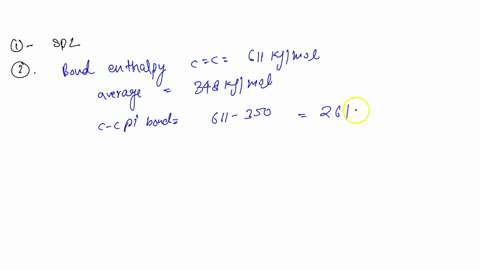 ①- SP2
②. Bond enthalpy c=c= 611 KJ/mol
average = 348 KJ/mol
c-c pi bond= 611-350 = 261